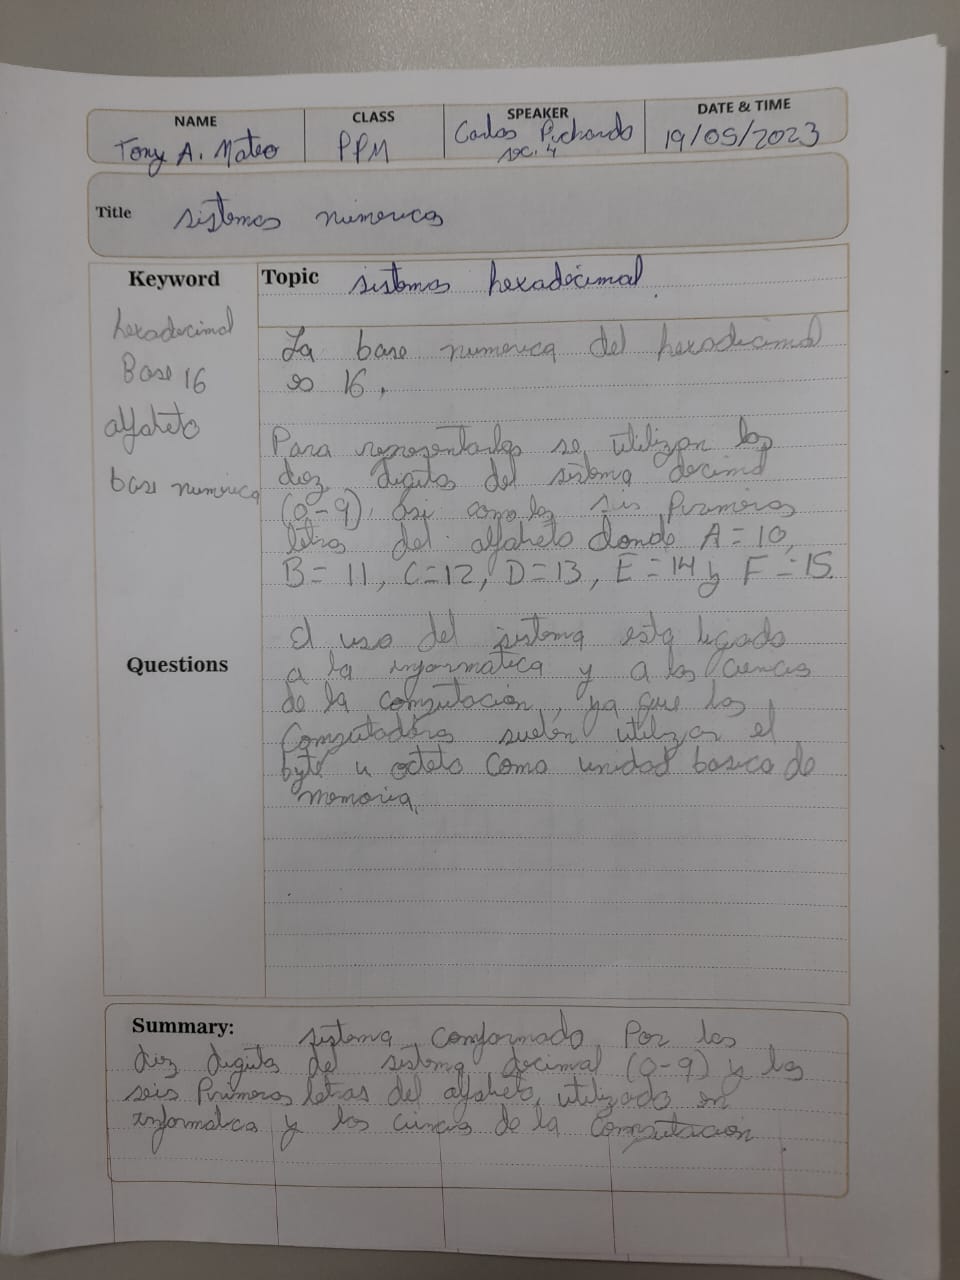 NAME CLASS SPEAKER DATE & TIME
Tony A. Mateo PPM Carlos Pichardo 19/05/2023
sec. 4
Title sistemas numericos
Keyword
hexadecimal
Base 16
alfabeto
base numerica
Questions
Topic sistemas hexadécimal.
La base numerica del hexadecimal
es 16.
Para representarlos se utilizan los
diez digitos del sistema decimal
(0-9), asi como las seis Primeras
letras del alfabeto donde A = 10,
B = 11, C = 12, D = 13, E = 14 y F = 15.
El uso del sistema esta ligado
a la informatica y a las Ciencias
de la computación, ya que las
Computadoras suelen utilizar el
byte u octeto como unidad basica de
memoria.
Summary: sistema comformado Por los
diez digitos del sistema decimal (0-9) y las
seis Primeras letras del alfabeto, utilizado en
informatica y las ciencias de la Computacion.